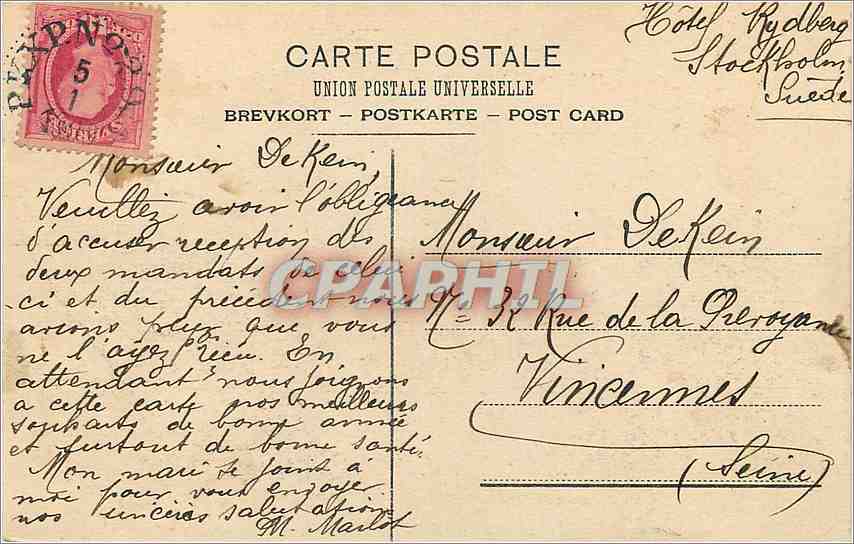 PLK.P.NO
5
1
Hôtel Rydberg
Stockholm
Suède
CARTE POSTALE
UNION POSTALE UNIVERSELLE
BREVKORT – POSTKARTE – POST CARD
Monsieur DeKein,
Veuillez avoir l'obligeance
d'accuser reception des
deux mandats de celui
ci et du précédent nous
avons peur que vous
ne l'ayez reçu. En
attendant nous joignons
a cette carte nos meilleurs
souhaits de bonne année
et surtout de bonne santé.
Mon mari se joint à
moi pour vous envoyer
nos sincères salutations
M. Marlot
Monsieur DeKein
No 32 Rue de la Prevoyance
Vincennes
(Seine)
CPAPHIL